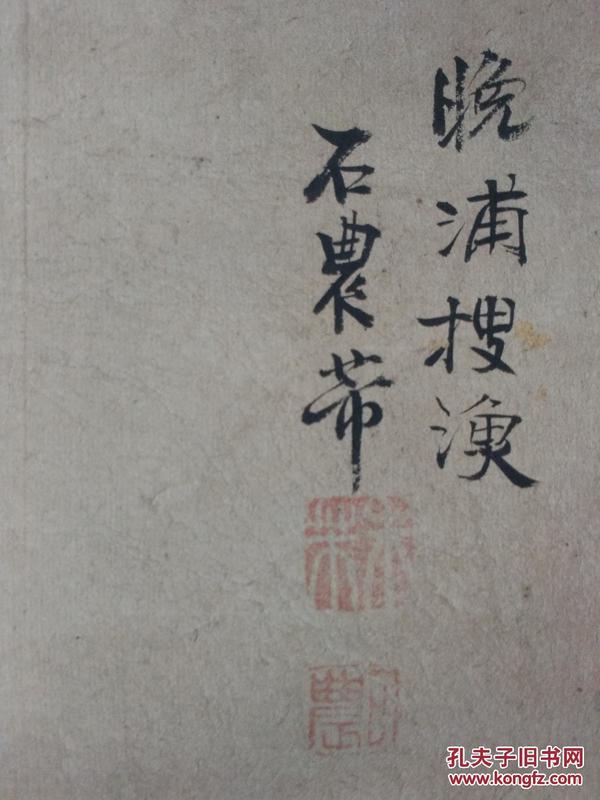 晚浦搜渔
石農芾
孔夫子旧书网
www.kongfz.com